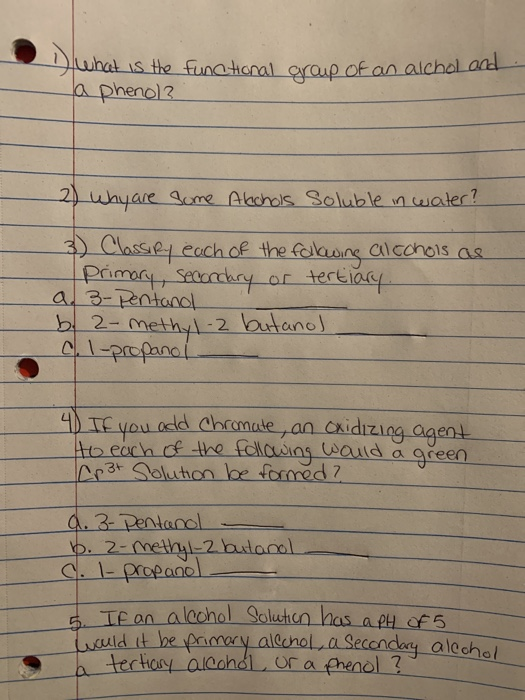 1) What is the functional group of an alchol and
a phenol?
2) Why are some Alachols Soluble in water?
3) Classify each of the following alcohols as
primary, secondary or tertiary.
a. 3-Pentanol ______
b. 2-methyl-2 butanol ______
c. 1-propanol ______
4) If you add chromate, an oxidizing agent
to each of the following would a green
Cr³⁺ Solution be formed?
a. 3- Pentanol ______
b. 2-methyl-2 butanol ______
c. 1- propanol ______
5. If an alcohol Solution has a pH of 5
would it be primary alcohol, a secondary alcohol
a tertiary alcohol, or a phenol?